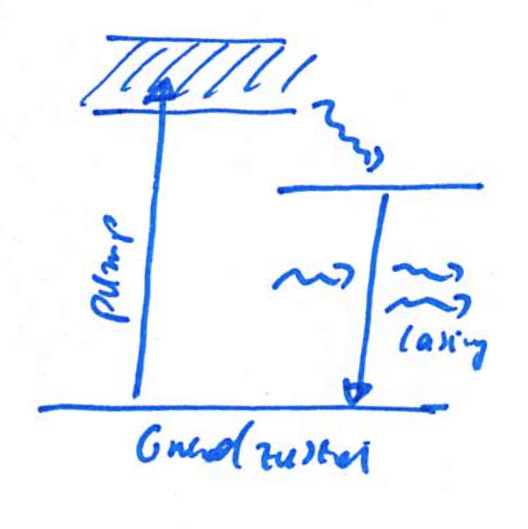 pump
lasing
Grundzustand